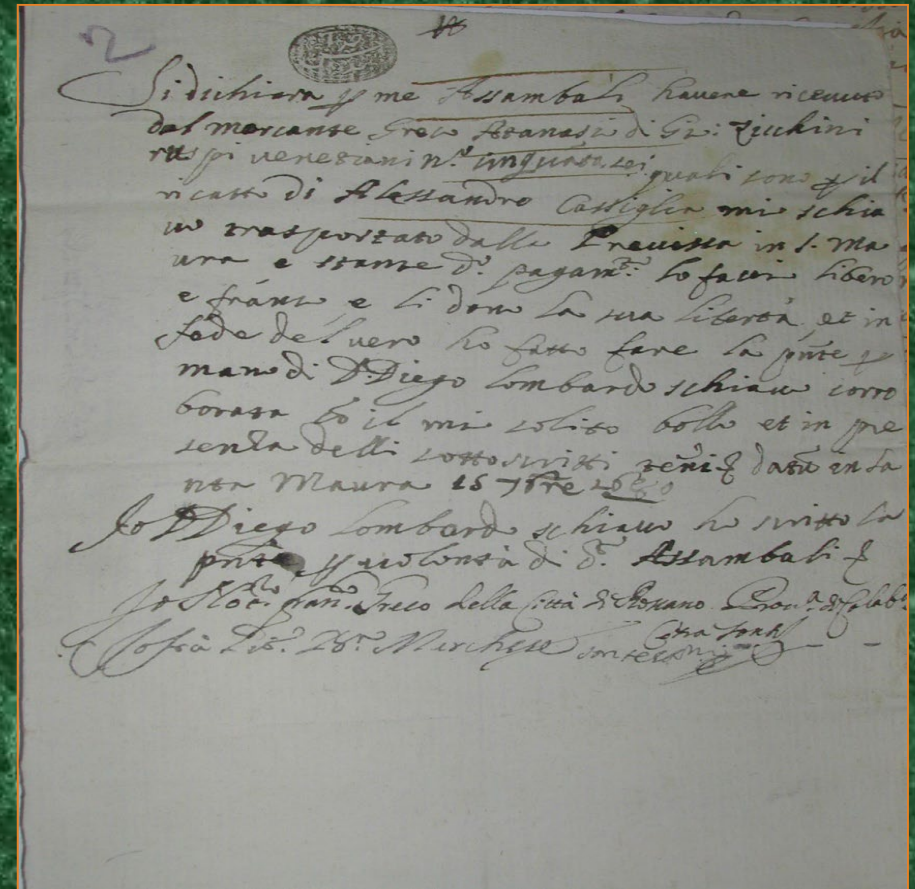 2
Si dichiara p me Assambali havere ricevuto
dal mercante Greco Attanasi di Gi: Zicchini
ruspi venetiani n.º cinquanta sei quali sono p il
ricatto di Alessandro Castiglia mi schia
vo trasportato dalla Previssa in S. Ma
ura e stante d.º pagam.to lo facci libero
e franco e li dono la sua libertà, et in
fede del vero ho fatto fare la pnte p
mano di D. Diego Lombardo schiavo corro
borata co il mi solito bollo et in pre
senza delli sottoscritti teni datu in Sa
nta Maura 15 7bre
Io D Diego Lombardo schiavo ho scritto la
pnte p volontà di d.º Assambali
Io fran.co Greco della Città di Rossano Prov.a di Calab.a
Citra sono
Io frà Marchese son testi